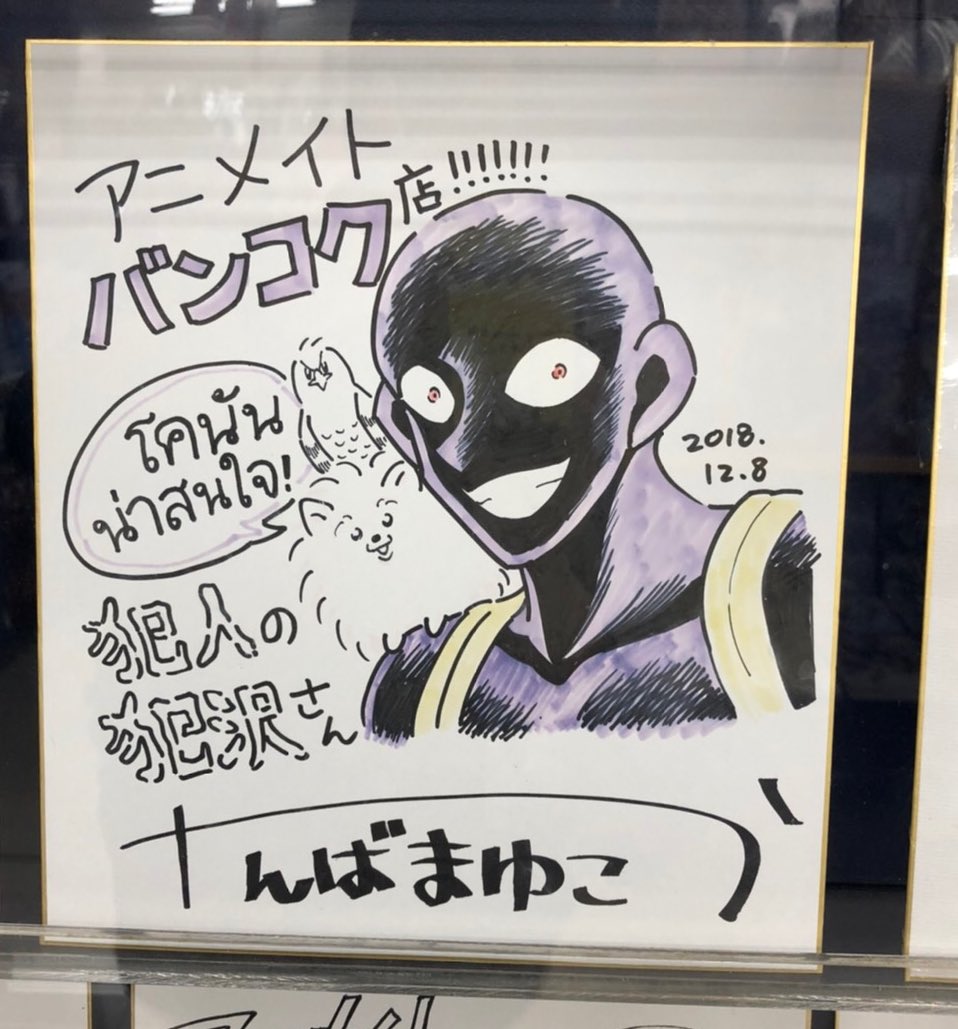 アニメイト
バンコク店!!!!!!!
โคนัน
น่าสนใจ!
2018.
12.8
犯人の
犯沢さん
かんばまゆこ